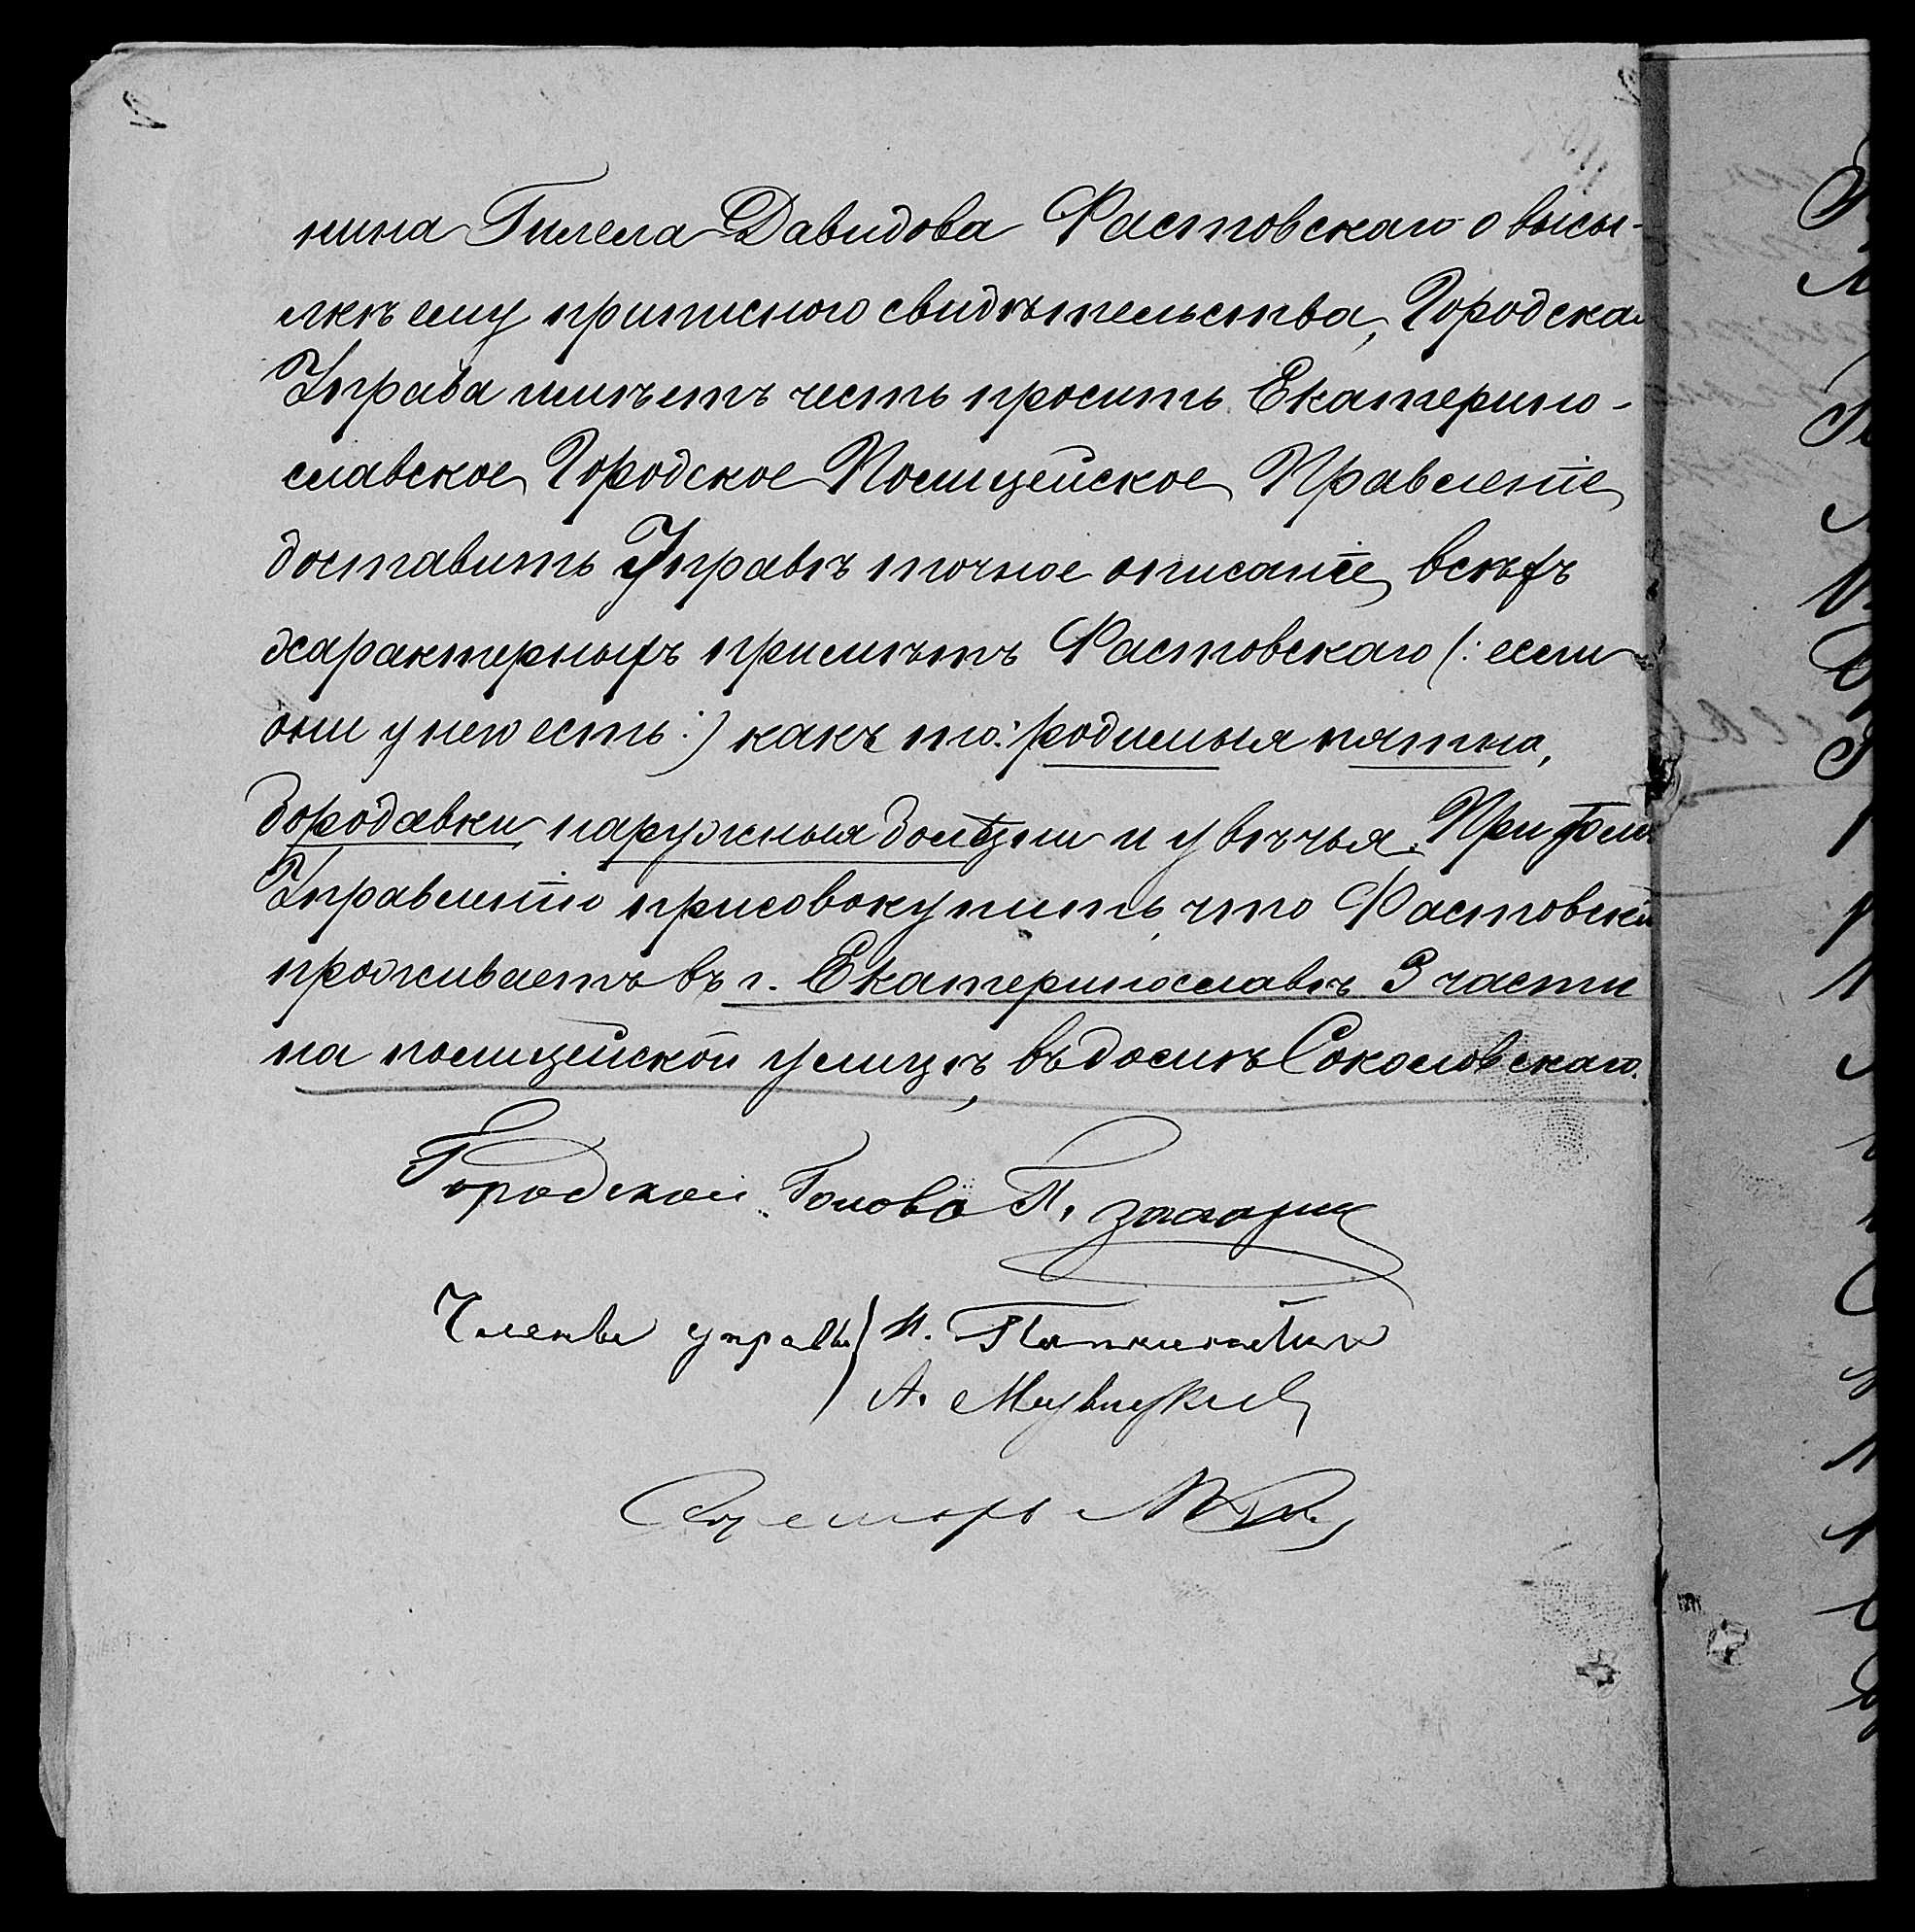 нина Гилела Давидова Фастовскаго о высы-
лкѣ ему приписного свидѣтельства, Городская
Управа имѣетъ честь просить Екатерино-
славское Городское Полицейское Правленіе
доставить Управѣ точное описаніе всѣхъ
характерныхъ примѣтъ Фастовскаго (: если
они у него есть:) какъ то: родимыя пятна,
бородавки, наружныя болѣзни и увѣчья. При
Управленію присовокупить, что Фастовскій
проживаетъ въ г. Екатеринославѣ 3 части
на полицейской улицѣ, въ домѣ Соколовскаго.
Городской Голова П.
Члены управы
А.
Секретарь